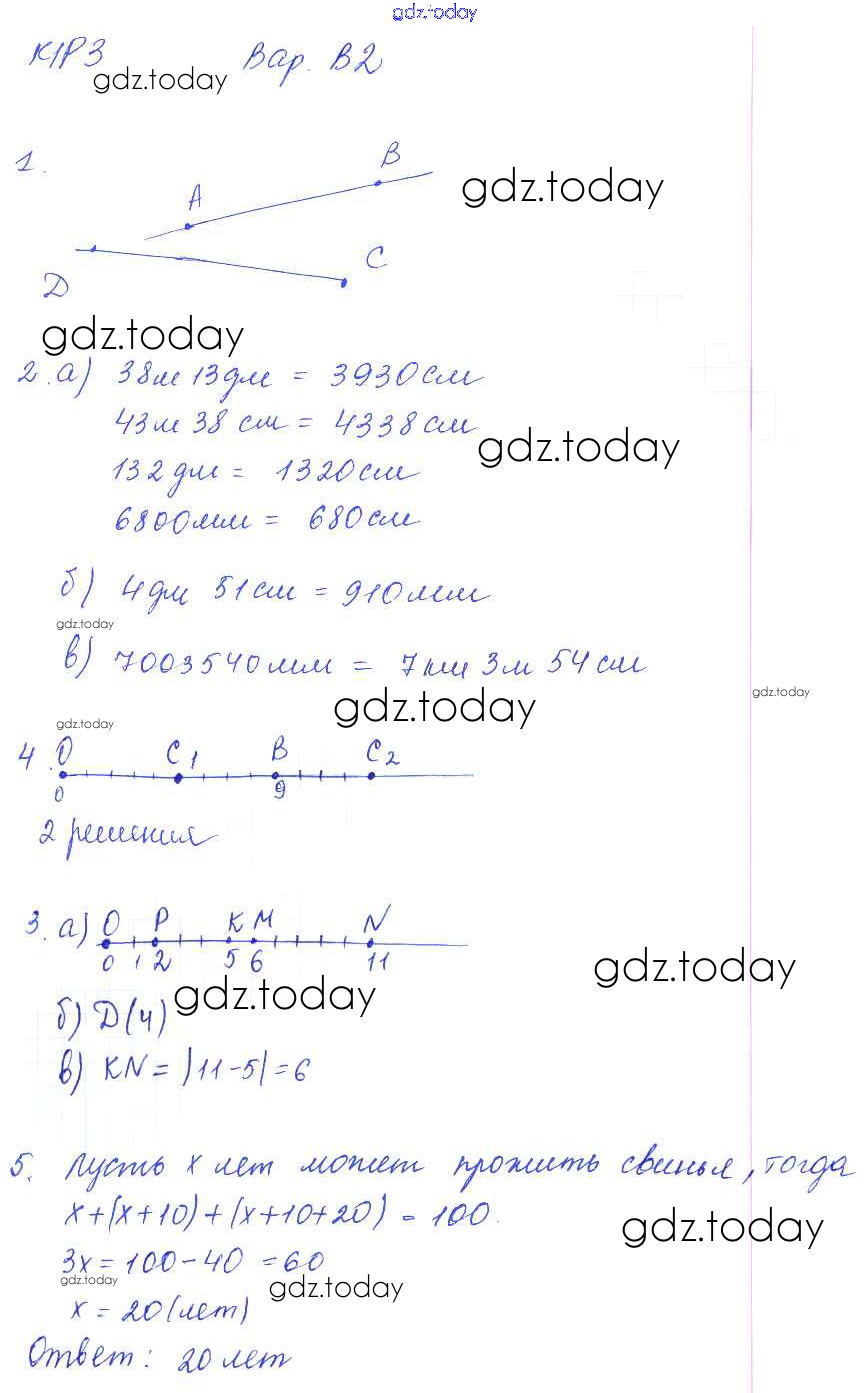 gdz.today
К/Р3 Вар. В2
gdz.today
1.
A B
gdz.today
D C
gdz.today
2. а) 38м 13дм = 3930см
43м 38 см = 4338см
gdz.today
132дм = 1320см
6800мм = 680см
б) 4дм 51см = 910мм
gdz.today
в) 7003540мм = 7км 3м 54см
gdz.today
gdz.today
gdz.today
4. O C1 B C2
0 9
2 решения
3. а) O P K M N
0 1 2 5 6 11
gdz.today
gdz.today
б) D(4)
в) KN = |11-5| = 6
5. Пусть x лет может прожить свинья, тогда
x+(x+10)+(x+10+20) = 100.
gdz.today
3x = 100-40 = 60
gdz.today
gdz.today
x = 20 (лет)
Ответ: 20 лет